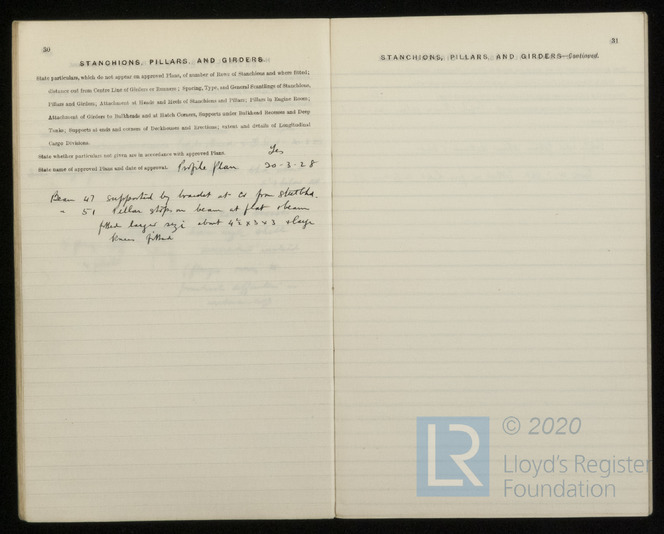 50
STANCHIONS, PILLARS, AND GIRDERS
State particulars, which do not appear on approved Plans, of number of Rows of Stanchions and where fitted;
distance out from Centre Line of Girders or Runners; Spacing, Type, and General Scantlings of Stanchions,
Pillars and Girders; Attachment at Heads and Heels of Stanchions and Pillars; Pillars in Engine Room;
Attachment of Girders to Bulkheads and at Hatch Corners, Supports under Bulkhead Recesses and Deep
Tanks; Supports at ends and corners of Deckhouses and Erections; extent and details of Longitudinal
Cargo Divisions.
State whether particulars not given are in accordance with approved Plans. Yes
State name of approved Plans and date of approval. Profile Plan 30-3-28
Beam 47 supported by bracket at from
" 51 Pillar stops on beam at flat & beam
fitted larger size about 4½ x 3 x 3 & large
knees fitted
31
STANCHIONS, PILLARS, AND GIRDERS—Continued.
LR
© 2020
Lloyd's Register
Foundation